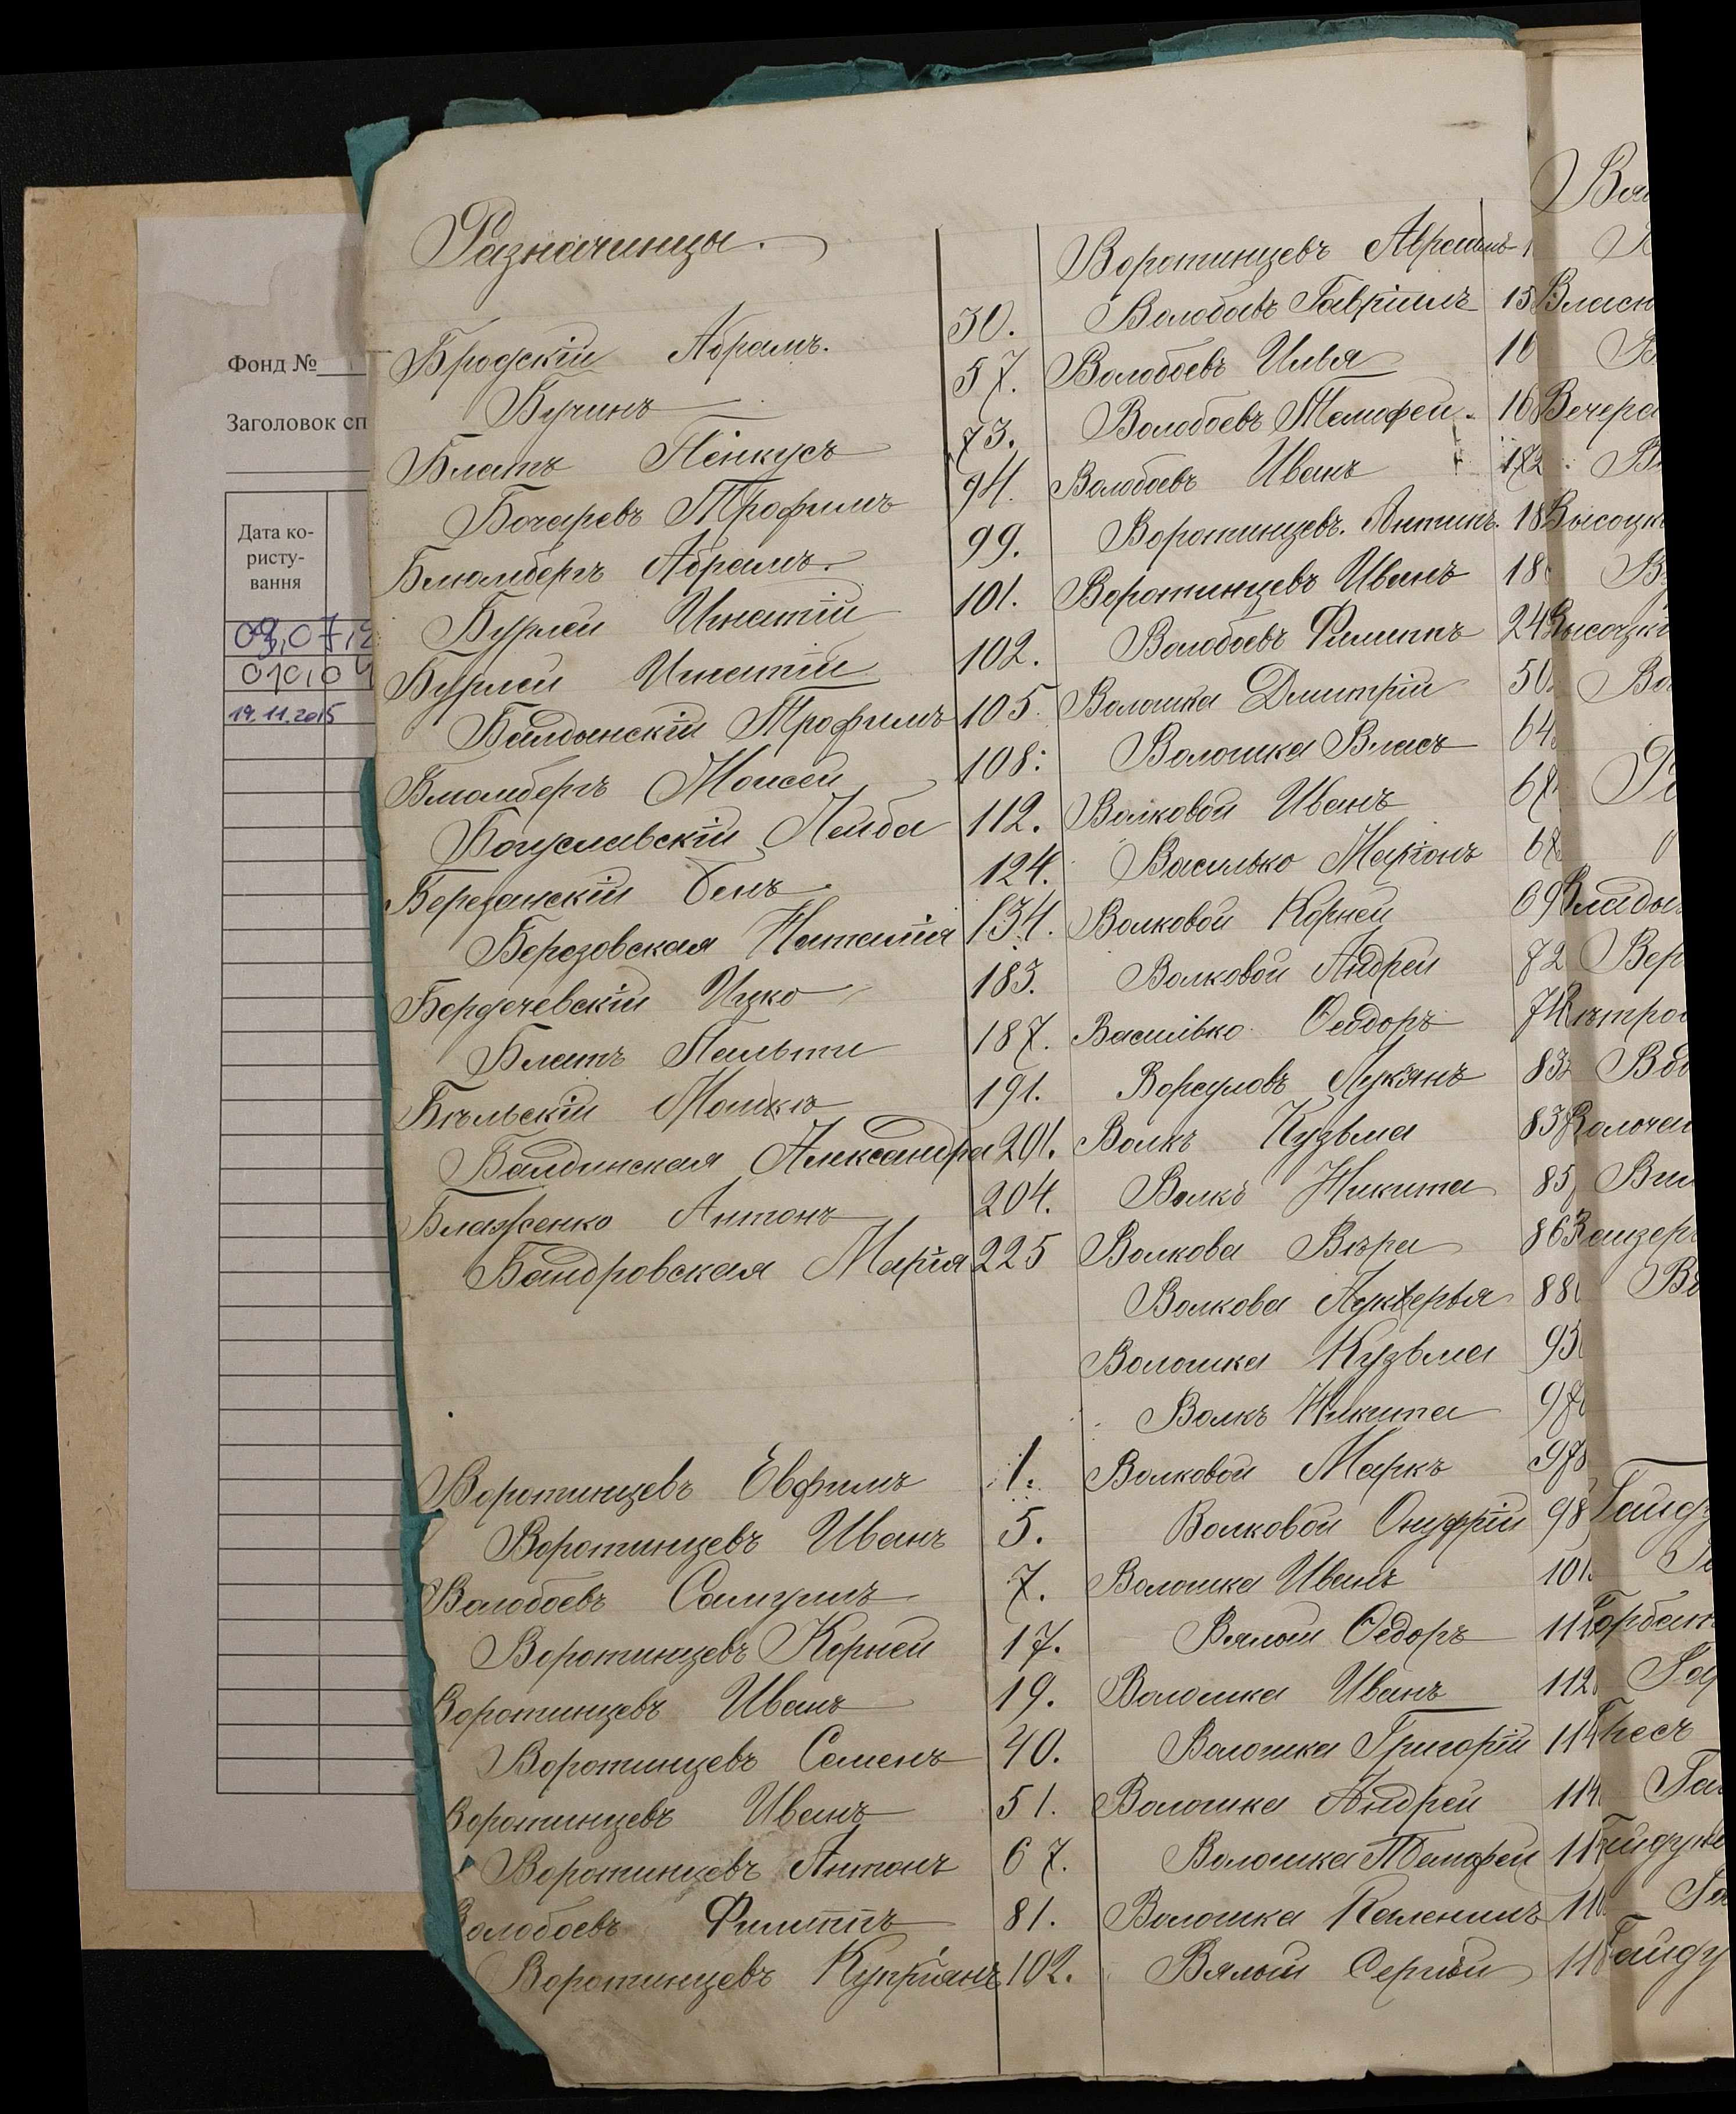 Фонд №
Заголовок сп
Дата ко-
ристу-
вання
19.11.2015
Разначинцы.
Бродскій Абрамъ. 30.
Бучинъ 57.
Блатъ Пинкусъ 73.
Бочаревъ Трофимъ 94.
Блюмбергъ Абрамъ. 99.
Бурлей Игнатій 101.
Бурлей Игнатій 102.
Балдынскій Трофимъ 105.
Блюмбергъ Моисей 108.
Богуславскій Лейба 112.
Березанскій Бенъ 124.
Березовская Наталія 134.
Бердечевскій Ицко 183.
Блатъ Пальти 187.
Бѣльскій 191.
Балдинская Александра 201.
Блаженко Антонъ 204.
Бандровская Марія 225
Воротинцевъ Евфимъ 1.
Воротинцевъ Иванъ 5.
Волобоевъ Самуилъ 7.
Воротинцевъ Корней 17.
Воротинцевъ Иванъ 19.
Воротинцевъ Семенъ 40.
Воротинцевъ Иванъ 51.
Воротинцевъ Антонъ 67.
Волобоевъ Филиппъ 81.
Воротинцевъ Купріянъ 102.
Воротинцевъ Абрамъ 1
Волобоевъ Гавріилъ 15
Волобоевъ Илья 16
Волобоевъ Тимофей. 16
Волобоевъ Иванъ 172
Воротинцевъ. Антипъ. 18
Воротинцевъ Иванъ 18
Волобоевъ Филиппъ 24
Волошка Дмитрій 50
Волошка Власъ 64
Волковой Иванъ 67
Василько Маріонъ 67
Волковой Корней 69
Волковой Андрей 72
Василько Ѳеодоръ 74
Ворсуловъ Лукянъ 83
Волкъ Кузьма 83
Волкъ Никита 85
Волкова Вѣра 86
Волкова Лукерья 88
Волошка Кузьма 95
Волкъ Никита 97
Волковой Маркъ 97
Волковой Онуфрій 98
Волошка Иванъ 101
Вялый Ѳедоръ 111
Волошка Иванъ 112
Волошка Григорій 114
Волошка Андрей 114
Волошка Тимофей 11
Волошка Каленикъ 11
Вялый Сергѣй 11
Власю
Вечера
Высоцк
Высоцкі
Владыч
Вер
Вѣтров
Волочаи
Гайд
Горбан
Гнесъ
Гайдук
Гайду